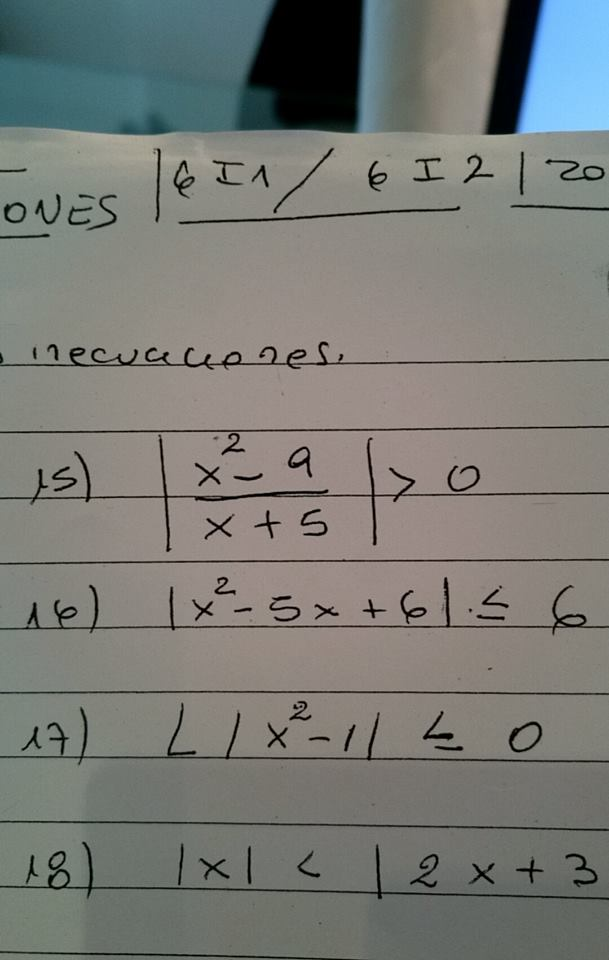 ONES | 6 I1 / 6 I 2 | 20
inecuaciones.
15) | x² - 9 / x + 5 | > 0
16) | x² - 5x + 6 | ≤ 6
17) L | x² - 1 | ≤ 0
18) | x | < | 2x + 3